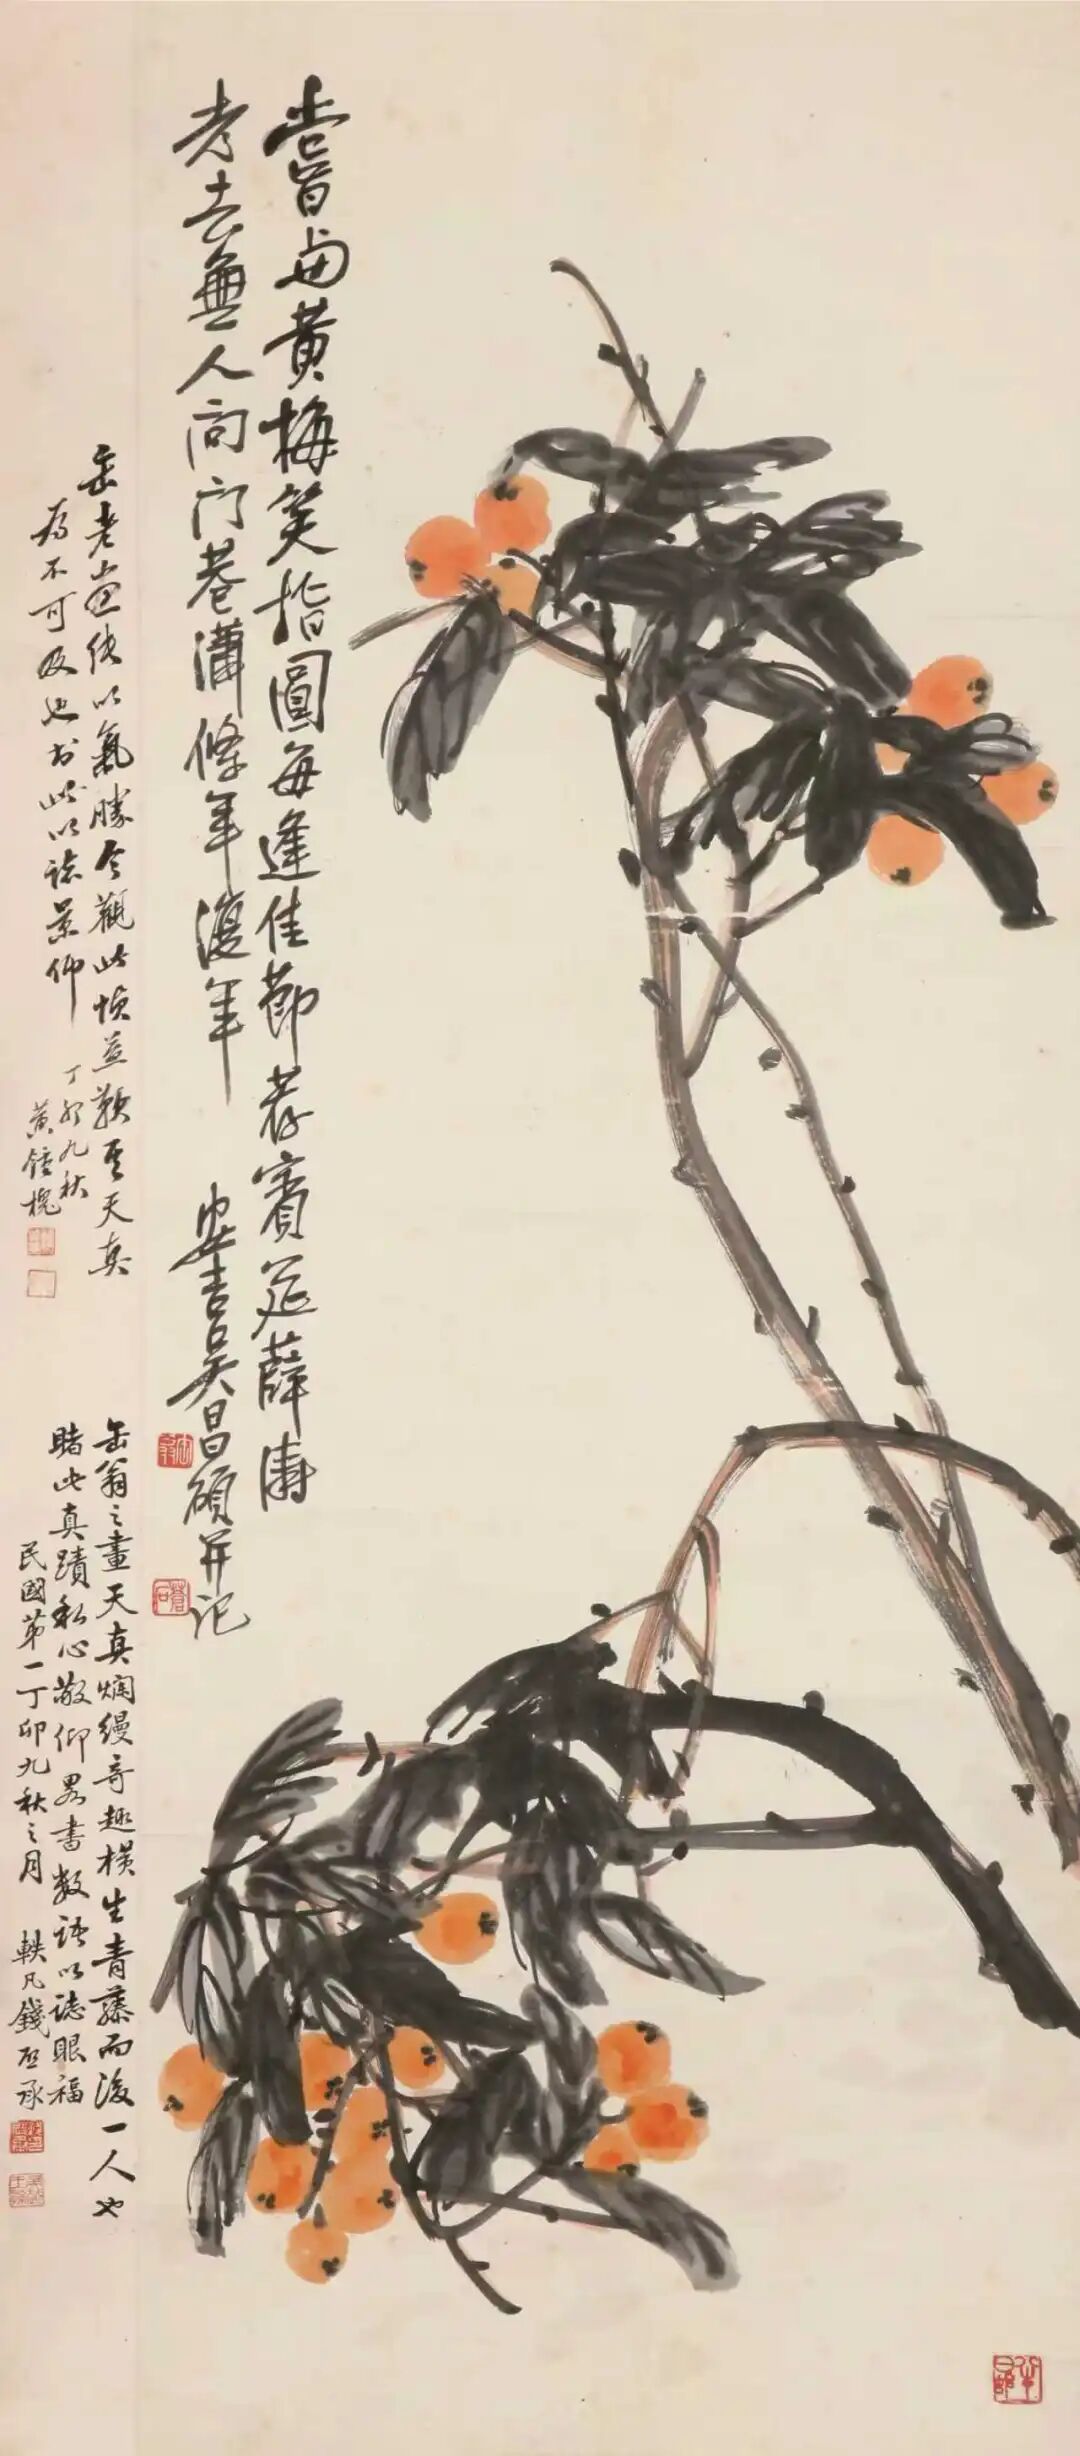 嘗卣黄梅笑指圓每逢佳節荐賓筵薛濤
老去無人問門巷瀟條年復年
安吉吴昌碩并记
缶老畫繢以氣勝今觀此幀益歎其天真
為不可及也书此以誌景仰
丁卯九秋
黄鍾
缶翁之畫天真爛縵奇趣横生青藤而後一人也
睹此真蹟私心敬仰畧書数语以誌眼福
民國第一丁卯九秋之月
軼凡錢承